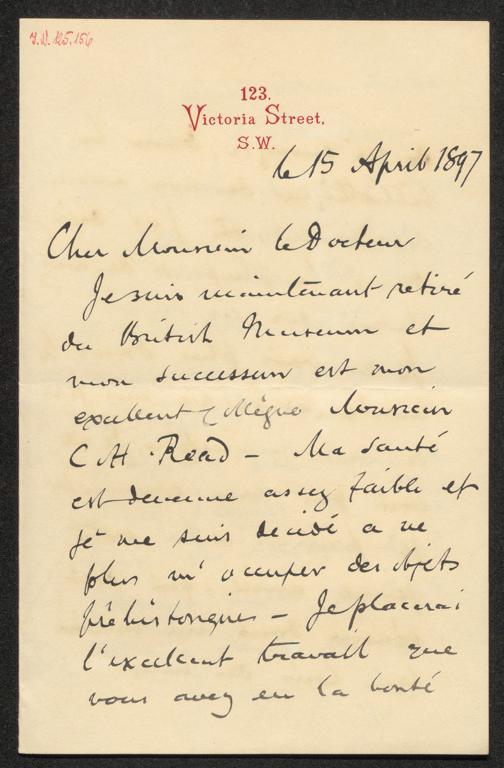 J.N. 125.156
123.
Victoria Street,
S.W.
le 15 April 1897
Cher Monsieur le Docteur
Je suis maintenant retiré
du British Museum et
mon successeur est mon
excellent Collègue Monsieur
C H. Read – Ma santé
est devenue assez faible et
je me suis decidé a ne
plus m'occuper des objets
préhistoriques – Je placerai
l'excellent travail que
vous avez eu la bonté